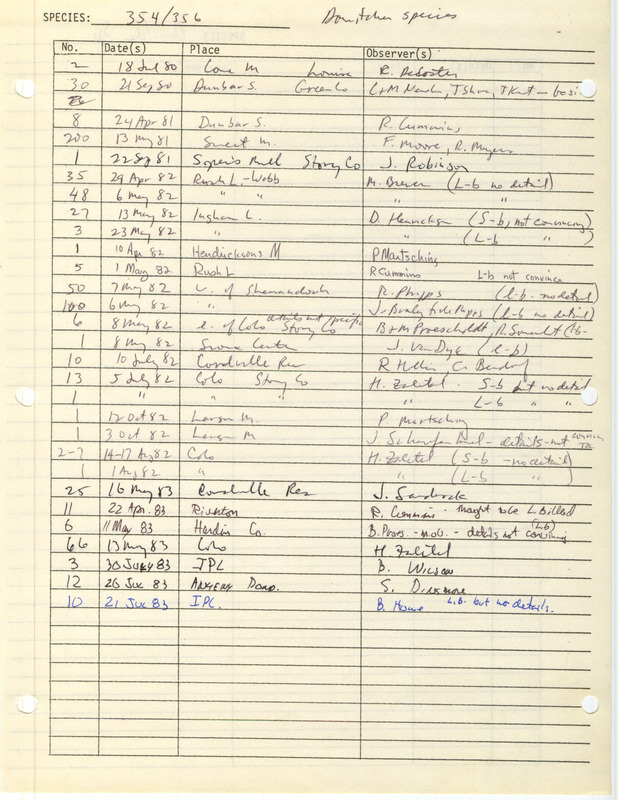 SPECIES: 354/356 Dowitcher species
No. Date(s) Place Observer(s)
2 18 Jul 80 Cone M Louisa R. DeCoster
30 21 Sep 80 Dunbar S. Greene Co C+M T Shires, T Kent
8 24 Apr 81 Dunbar S. R. Cummins
200 13 May 81 Sweet M. F. Moore, R. Myers
1 22 Sep 81 Soper's Mill Story Co J. Robinson
35 29 Apr 82 Rush L. - Webb M. Brewer (L-b no detail)
48 6 May 82 " " " "
27 13 May 82 Ingham L. D. Henrickson (S-b, not convincing)
3 23 May 82 " (L-b " )
1 10 Apr 82 Hendricksons M P Martsching
5 1 May 82 Rush L R Cummins L-b not convince
50 7 May 82 W. of Shenandoah R. Phipps (L-b - no detail)
100 6 May 82 " J. (L-b no details)
6 8 May 82 e. of Colo Story Co details not specific B+M Proescholdt, R
1 8 May 82 Center J. Van Dyk (L-b)
10 10 July 82 Coralville Res R Hollis, C. Bendorf
13 5 July 82 Colo Story Co H. Zaletel S-b but no detail
1 " " " " L-b " "
1 12 Oct 82 Larson M. P. Martsching
1 3 Oct 82 Larson M J. - details - not
2-7 14-17 Aug 82 Colo H. Zaletel (S-b - no detail)
1 1 Aug 82 " " (L-b " )
25 16 May 83 Coralville Res J. Sandrock
11 22 Apr. 83 Riverton R. Cummins - thought to be L. Billed
6 11 May 83 Hardin Co. B. Proes. - m.ob. - details not convincing (Lb)
66 13 May 83 Colo H. Zaletel
3 30 July 83 IPL B. Wilson
12 20 Jul 83 Ankeny Pond. S. Dinsmore
10 21 Jul 83 IPL. B. House L.B. but no details.